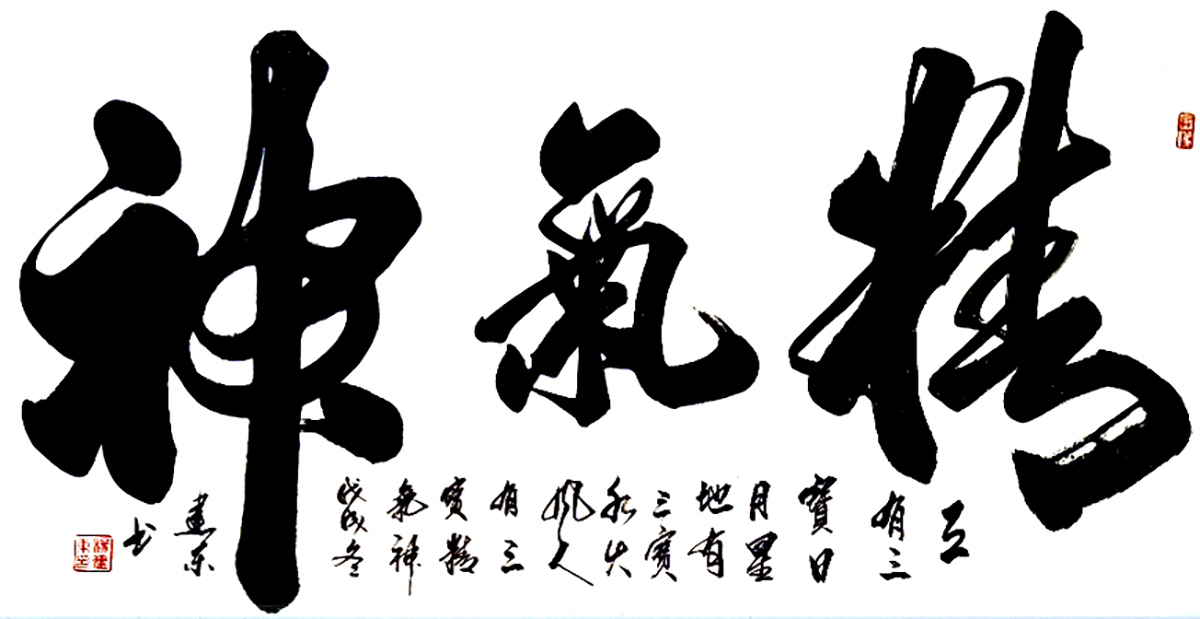 精氣神
天
有三
寶日
月星
地有
三寶
水火
風人
有三
寶精
氣神
戊戌冬
建东
书